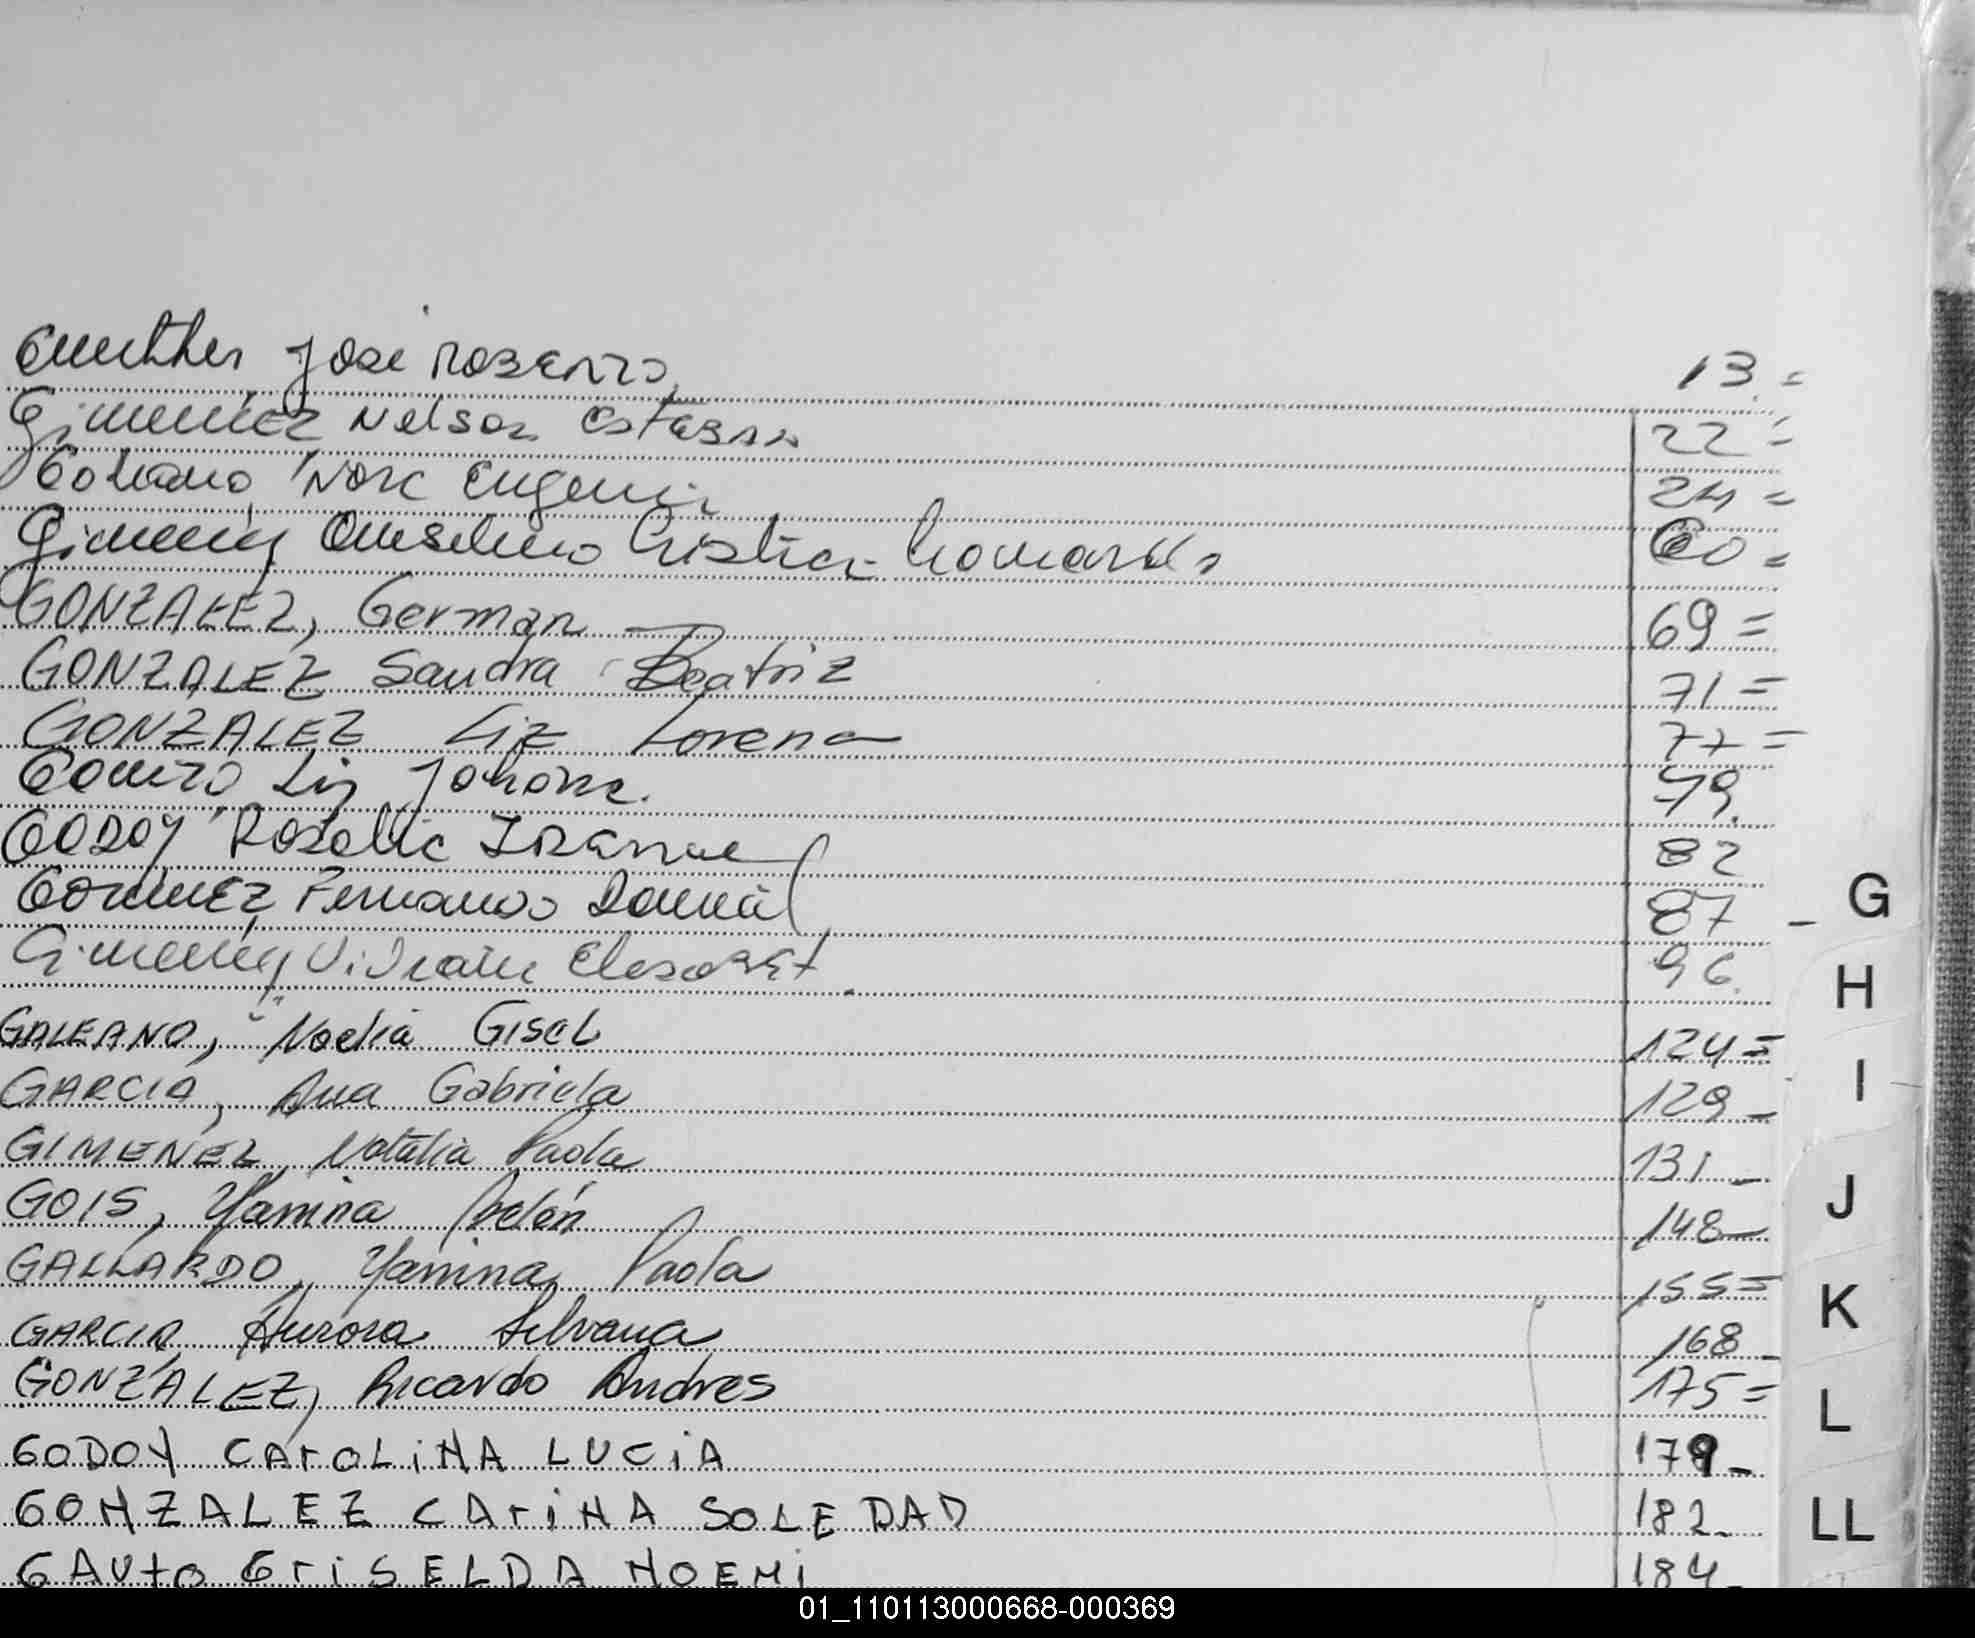 Gunther Jose Roberto 13.=
Gimenez Nelson Esteban 22=
Goleano Nora Eugenia 24=
Gimenez Anselmo Cristian Leonardo 60=
GONZALEZ, German 69=
GONZALEZ Sandra Beatriz 71=
GONZALEZ Liz Lorena 77=
Liz Johana. 79.
GODOY Rosalia 82
Fernando Daniel 87 - G
Gimenez Viviana Elisabet 96.
H
GALEANO, Noelia Gisel 124=
I
GARCIA, Ana Gabriela 129-
GIMENEZ, Natalia Paola 131-
J
GOIS, Yanina Belén 148-
GALLARDO, Yanina Paola 155=
K
GARCIA Aurora Silvana 168-
GONZALEZ, Ricardo Andres 175=
L
GODOY CArOLiNA LUCiA 179-
GONZALEZ CAriNA SOLEDAD 182-
LL
GAUtO GriSELDA NOEMi 184-
01_110113000668-000369